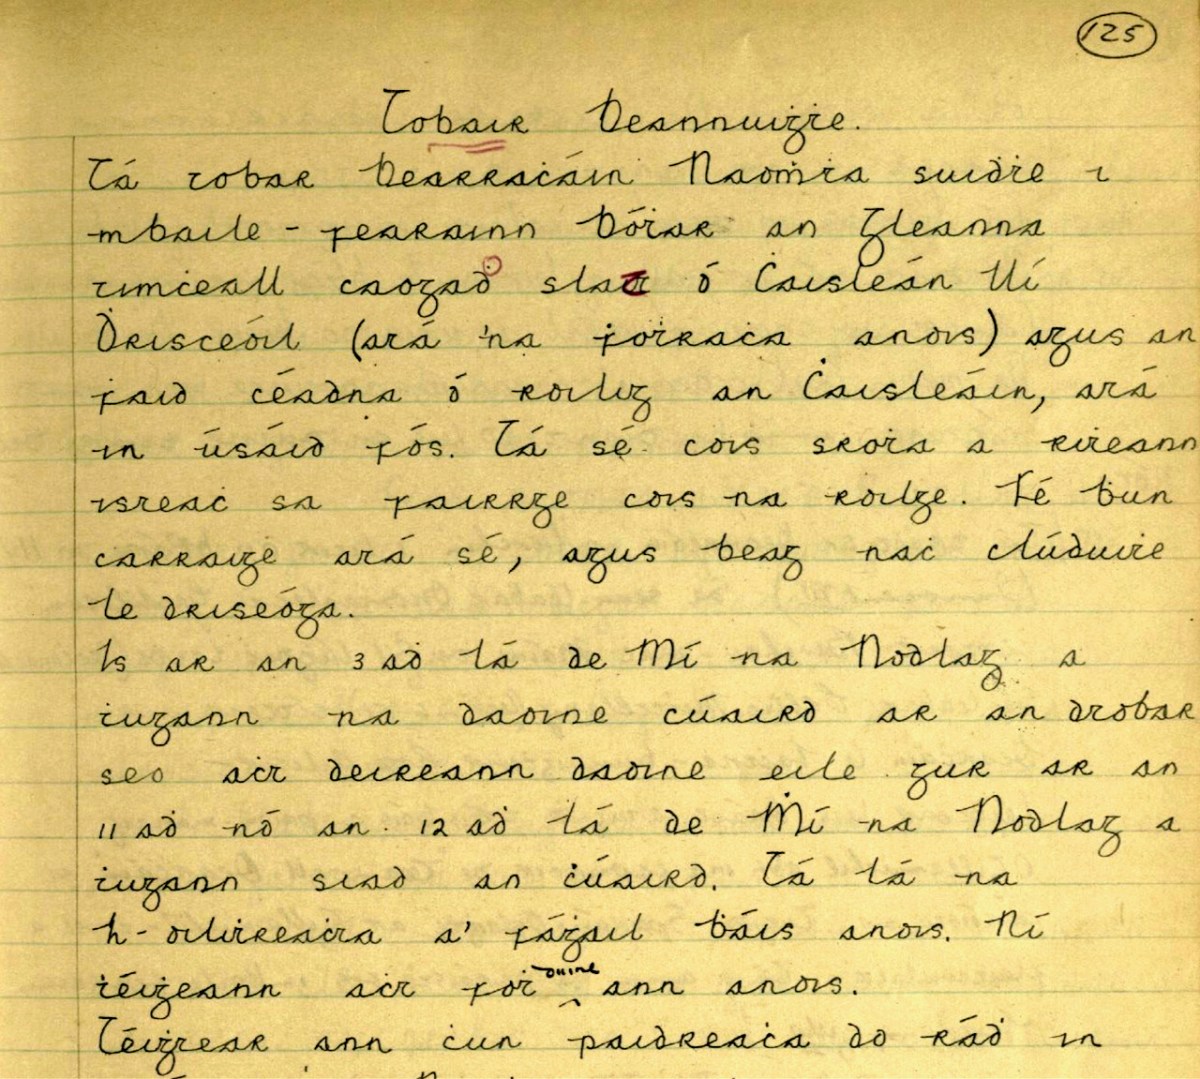 125
Tobair Beannuiġte.
Tá tobar Bearraċáin Naoṁta suiḋte i
mbaile - fearainn Bóṫar an Gleanna
timċeall caogaḋ slat ó Ċaisleán Uí
Ḋrisceóil (atá 'na ḟoṫraċa anois) agus an
faid céadna ó roilig an Ċaisleáin, atá
in úsáid fós. Tá sé cois sroṫa a riṫeann
isteaċ sa ḟairrge cois na roilge. Fé bun
carraige atá sé, agus beag naċ clúduiṫe
le driseóga.
Is ar an 3 aḋ lá de Mí na Nodlag a
ṫugann na daoine cúaird ar an dtobar
seo aċt deireann daoine eile gur ar an
11 aḋ nó an 12 aḋ lá de Ṁí na Nodlag a
ṫugann siad an ċúaird. Tá lá na
h-oiliṫreaċta a' fáġail báis anois. Ní
ṫéiġeann aċt foṫ duine ann anois.
Téiġtear ann ċun paidreaċa do ráḋ in